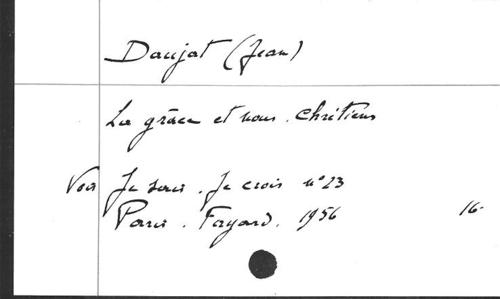 Daujat (Jean)
La grâce et nous. chrétiens
Voir Je sais. Je crois n° 23
Paris. Fayard. 1956 16-